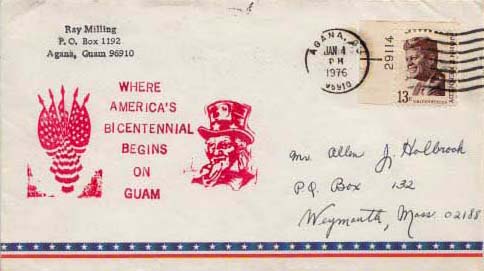 Ray Milling
P. O. Box 1192
Agana, Guam 96910
AGANA, GU
JAN 4
PM
1976
96910
29114
13c
WHERE
AMERICA'S
BICENTENNIAL
BEGINS
ON
GUAM
Mr. Allen J. Holbrook
P.O. Box 132
Weymouth, Mass 02188